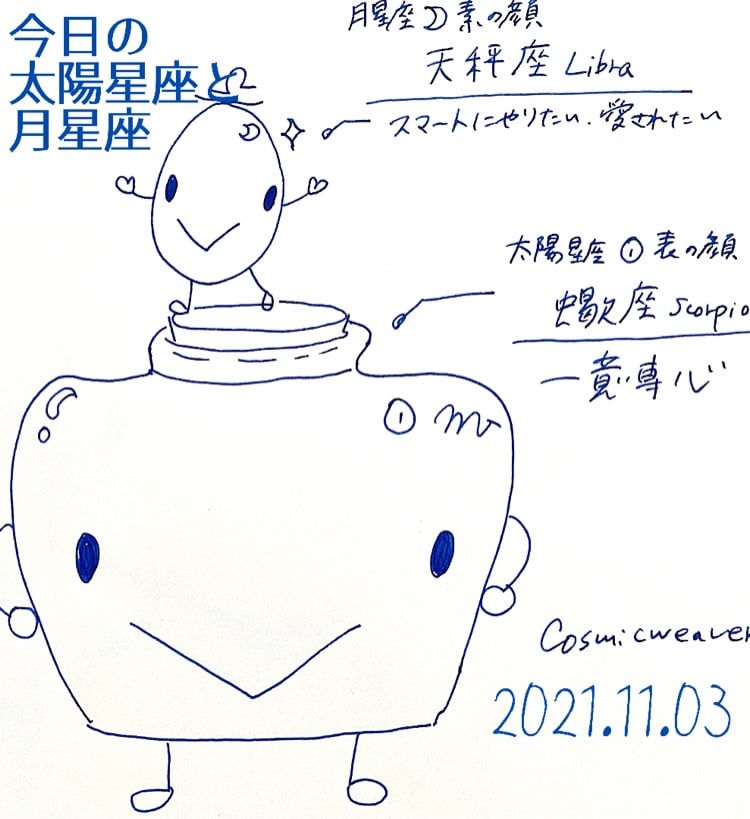 今日の
太陽星座と
月星座
月星座☽素の顔
天秤座 Libra
スマートにやりたい.愛されたい
太陽星座 ☉ 表の顔
蝎座 Scorpio
一意専心
Cosmicweaver
2021.11.03